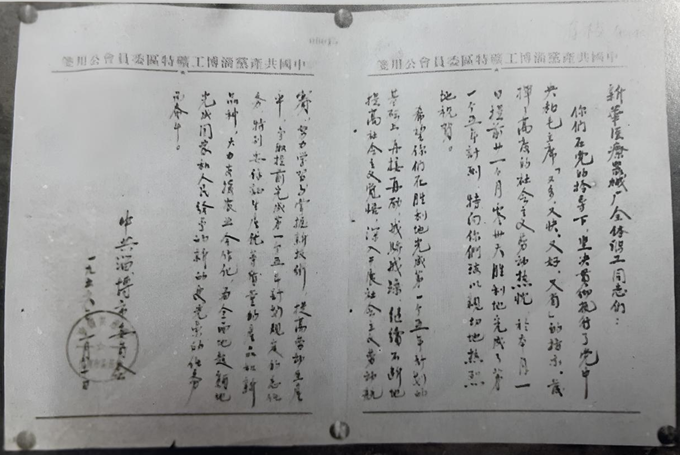 中國共產黨淄博工礦特區委員會公用箋
新華医療器械厂全体职工同志们：
你们在党的领导下，坚决贯彻执行了党中
央和毛主席「又多、又快、又好、又省」的指示，发
揮了高度的社会主义劳动热忱，於本月一
日提前廿一个月零廿天胜利地完成了第
一个五年计划，特向你們致以親切地热烈
地祝贺。
希望你们在胜利地完成第一个五年计划的
基础上，再接再励，戒骄戒躁，继续不断地
提高社会主义觉悟，深入开展社会主义劳动竞
中國共產黨淄博工礦特區委員會公用箋
赛，努力学习与掌握新技術，提高劳动生產
率，争取提前完成第一个五年计划规定的总任
务，特别要保证生產質量的產品和新
品种，大力支援农业合作化，为全面地超额地
完成国家和人民给予的新的更光荣的任务
而奋斗。
中共淄博委員会
一九五六二月日